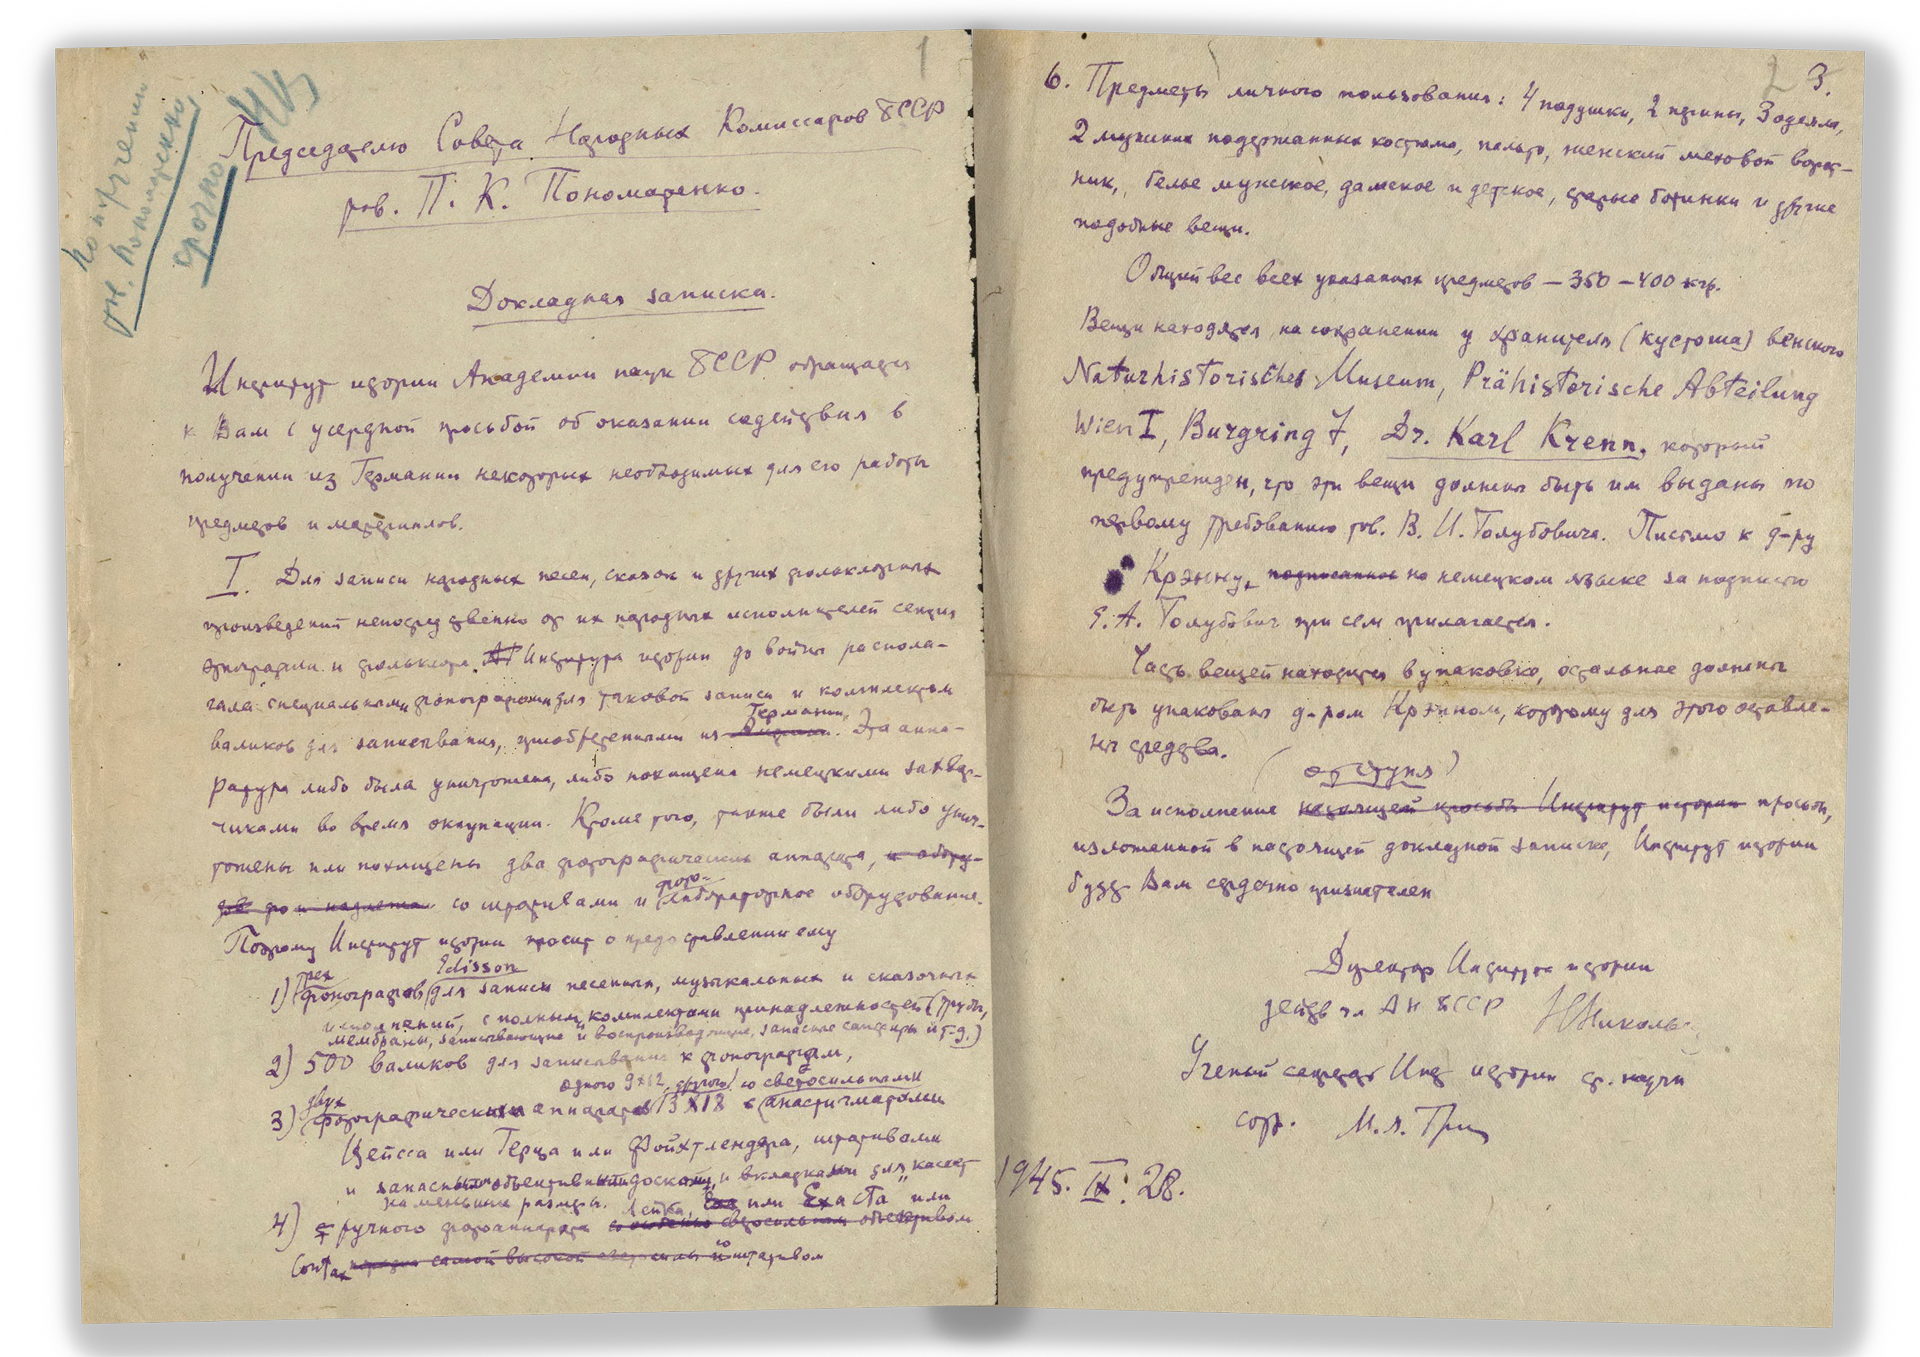 1
По поручению
тт. Пономаренко
срочно
Председателю Совета Народных Комиссаров БССР
тов. П. К. Пономаренко.
Докладная записка.
Институт истории Академии наук БССР обращается
к Вам с усердной просьбой об оказании содействия в
получении из Германии некоторых необходимых для его работы
предметов и материалов.
I. Для записи народных песен, сказок и других фольклорных
произведений непосредственно от их народных исполнителей секция
этнографии и фольклора Института истории до войны распола-
гала специальными фонографами для таковой записи и комплектом
Германии
валиков для записывания, приобретенными из . Эта аппа-
ратура либо была уничтожена, либо похищена немецкими захват-
чиками во время оккупации. Кроме того, также были либо унич-
тожены или похищены два фотографических аппарата, и обору-
фото-
со штативами и лабораторное оборудование.
Поэтому Институт истории просит о предоставлении ему
трех Edisson
1) фонографов для записи песенных, музыкальных и сказочных
исполнений, с полными комплектами принадлежностей (трубы,
мембраны, записывающие и воспроизводящие, запасные сапфиры и т.д.)
2) 500 валиков для записывания к фонографам,
одного 9х12, другого со светосильными
двух
3) фотографических аппаратов 13х18 с анастигматами
Цейсса или Герца или Фойхтлендера, штативами
и запасными объективными досками, и вкладками для кассет
на меньшие размеры. Лейка, или Ехаста или
4) ручного фотоаппарата со особенно светосильным объективом
Contax самой высокой со штативом
2 3.
6. Предметы личного пользования: 4 подушки, 2 перины, 3 одеяла,
2 мужских подержанных костюма, пальто, женский меховой ворот-
ник, белье мужское, дамское и детское, старые ботинки и другие
подобные вещи.
Общий вес всех указанных предметов – 350 – 400 кгр.
Вещи находятся на сохранении у хранителя (кустоша) венского
Naturhistorisches Museum, Prähistorische Abteilung
Wien I, Burgring 7, Dr. Karl Krenn, который
предупрежден, что эти вещи должны быть им выданы по
первому требованию тов. В. И. Голубовича. Письмо к д-ру
Крэнну, подписанное на немецком языке за подписью
Е. А. Голубович при сем прилагается.
Часть вещей находится в упаковке, остальные должны
быть упакованы д-ром Крэнном, которому для этого оставле-
ны средства.
(отступя)
За исполнение настоящей просьбы Институт истории просьбы,
изложенной в настоящей докладной записке, Институт истории
будет Вам сердечно признателен
Директор Института истории
действ чл АН БССР Н Никольс
Ученый секретарь Инст истории ст. научн
сотр. М. Я. Грин
1945. IX. 28.